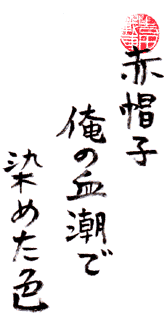 赤帽子
俺の血潮で
染めた色